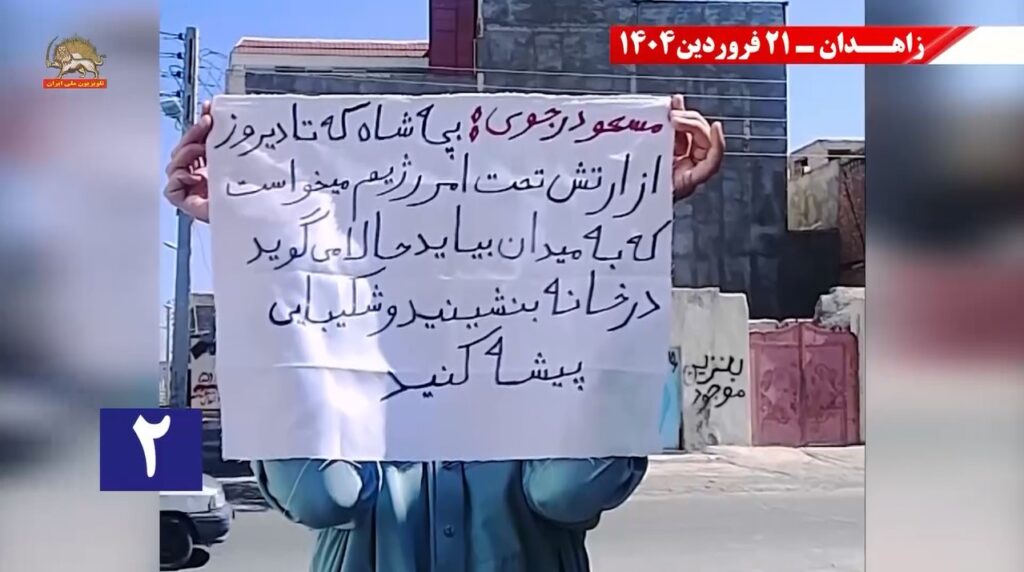 زاهدان - ۲۱ فروردین ۱۴۰۴
تلویزیون ملی ایران
مسعود رجوی: بچه شاه که تا دیروز
از ارتش تحت امر رژیم میخواست
که به میدان بیاید حالا می گوید
در خانه بنشینید و شکیبایی
پیشه کنید
بنزین
موجود
۲